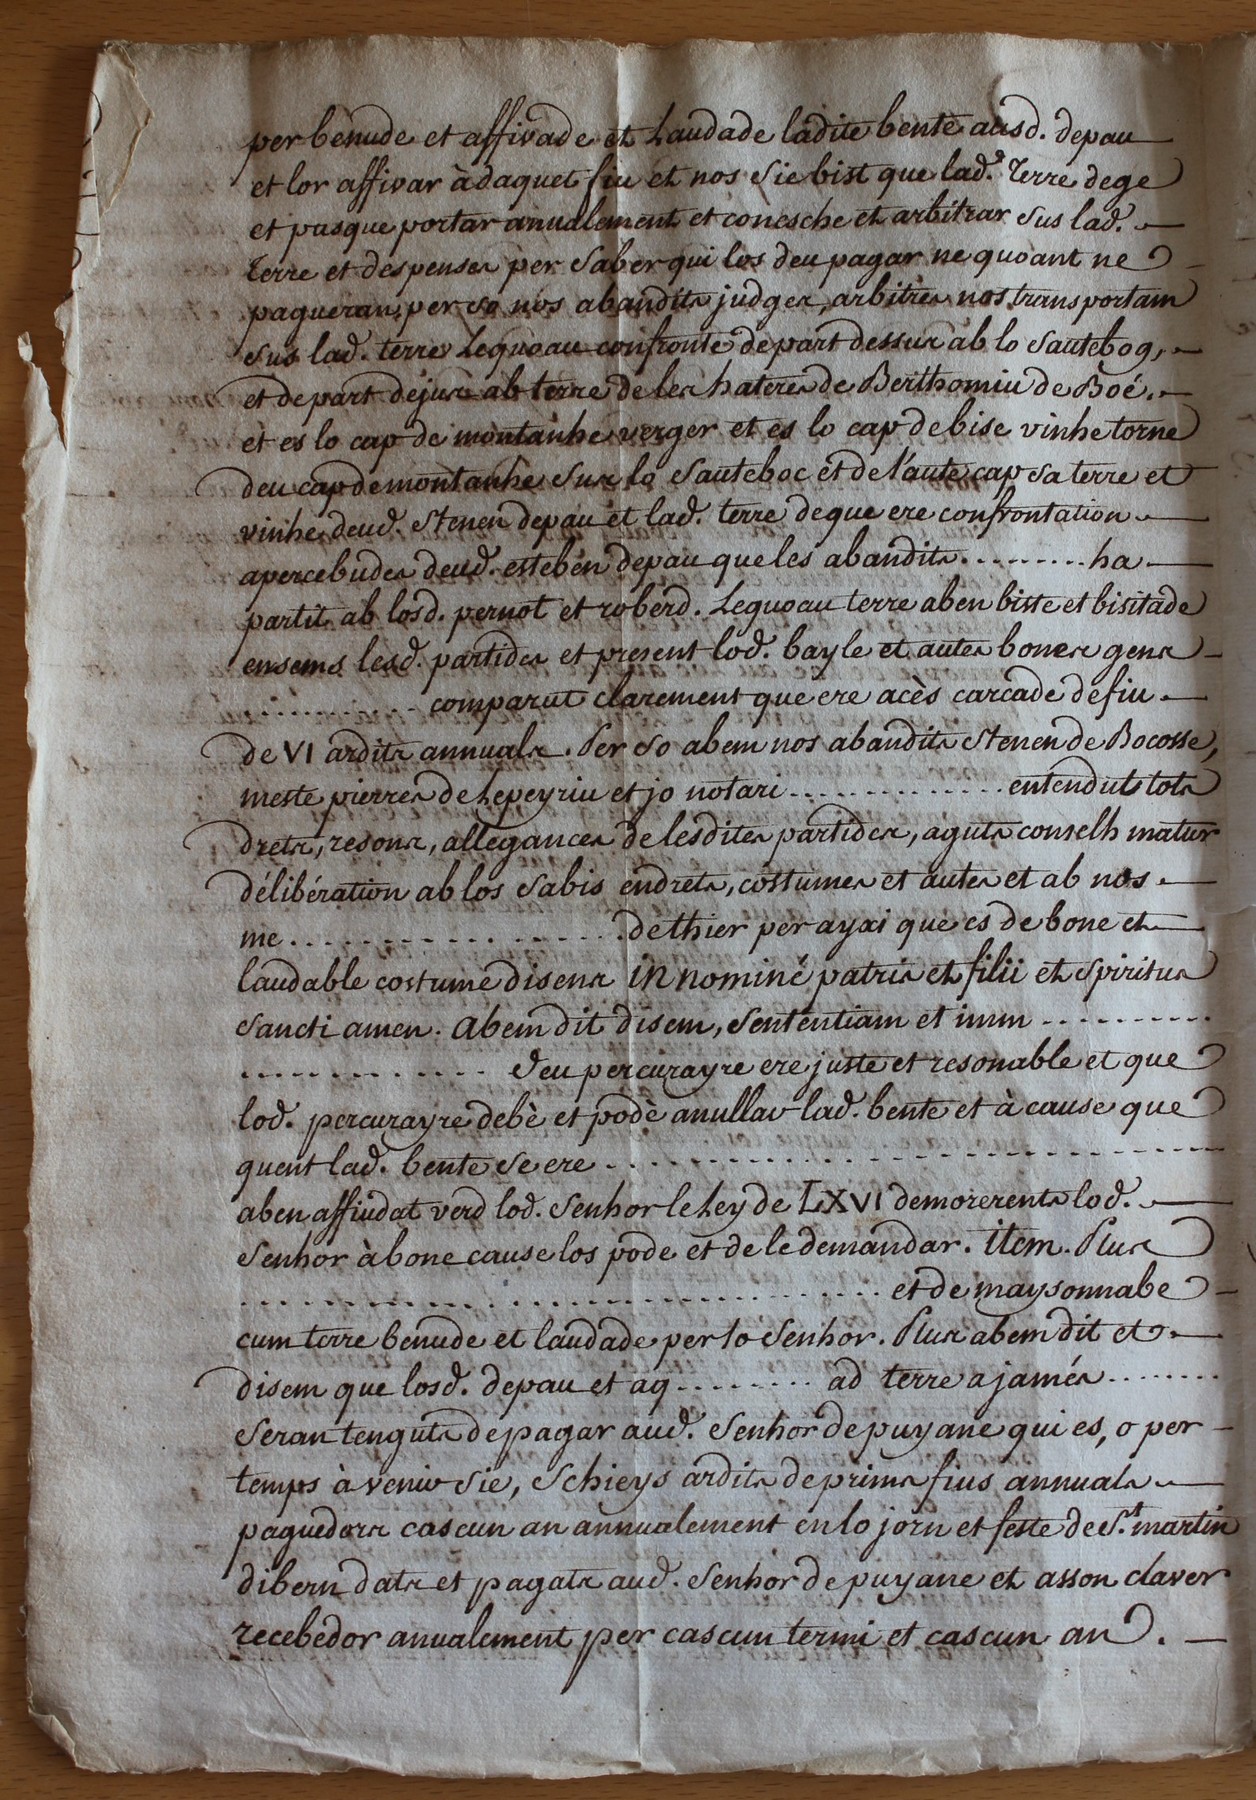 per benude et affivade et Laudade ladite bente ausd. depau
et lor affivar à daquet fiu et nos Sie bist que lad.e Terre dege
et pusque portar annualement et conesche et arbitrar Sus lad.
terre et despenses per Saber qui los deu pagar ne quoant ne
pagueran; per so nos abandits judges, arbitres nos transportam
Sus lad. terre Lequoau confronte de part dessus ab lo Sauteboq,
et de part dejus ab terre de les hateres de Berthomiu de Boé.
et es lo cap de montanhe verger et es lo cap de bise vinhe torne
deu cap de montanhe Sus lo Sauteboc et de l'aute cap Sa terre et
vinhe deud. Stenen depau et lad. terre de que ere confrontation
apercebudes deud. esteben depau que les abandits ......... ha
partit ab losd. pernot et roberd. Lequoau terre aben biste et bisitade
ensems lesd. partides et present lod. bayle et autes bones gens
............ comparut clarement que ere acès carcade de fiu
de VI ardits annuals. Per So abem nos abandits Stenen de Bocosse,
meste pierres de Lepeyriu et jo notari .............. entendut tots
drets, resons, allegances de lesdites partides, aguts conselh matur
délibération ab los Sabis en drets, costumes et autes et ab nos
me .................... de thier per ayxi que es de bone et
laudable costume disens in nominé patris et filii et Spiritus
Sancti amen. Abem dit disem, Sententiam et imm ..........
.............. deu percurayre ere juste et resonable et que
lod. percurayre debè et podè anullar lad. bente et à cause que
quent lad. bente Se ere ..............................
aben affiudat verd lod. Senhor le Ley de LXVI demorerents lod.
Senhor à bone cause los pode et de le demandar. item. Plus
.............................. et de maysonnabe
cum terre benude et laudade per lo Senhor. Plus abem dit et
disem que losd. depau et aq ......... ad terre a jamés ........
Seran tenguts de pagar aud. Senhor de puyane qui es, o per
temps à venir Sie, Schieys ardits de prims fius annuals
paguedors cascun an annualement en lo jorn et feste de St. martin
dibern dats et pagats aud. Senhor de puyane et asson claver
recebedor anualement per cascun termi et cascun an.